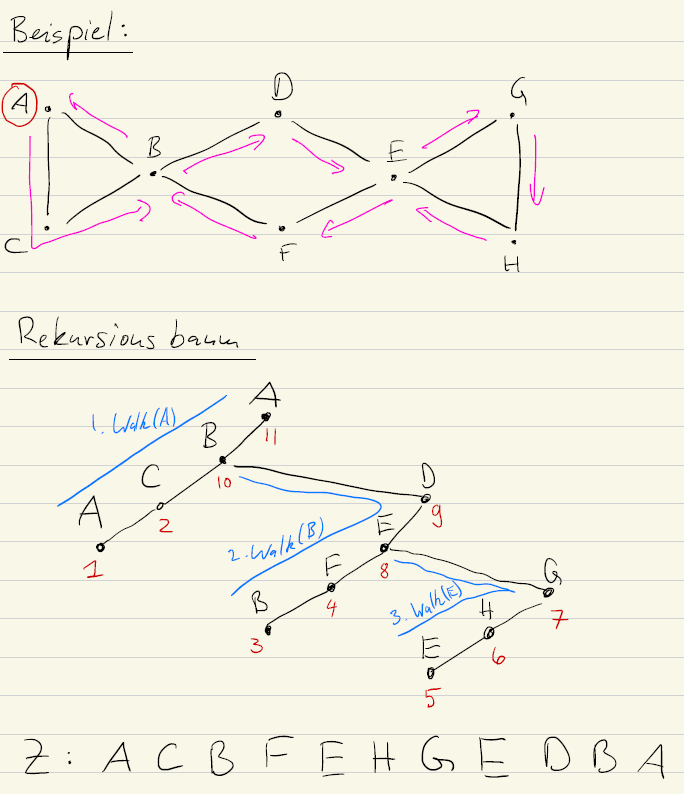 Beispiel:
D
G
A
B
E
C
F
H
Rekursionsbaum
A
1. Walk(A)
11
B
C
10
D
A
2
9
E
2. Walk(B)
1
F
8
G
B
4
3. Walk(E)
H
7
3
E
6
5
Z: A C B F E H G E D B A